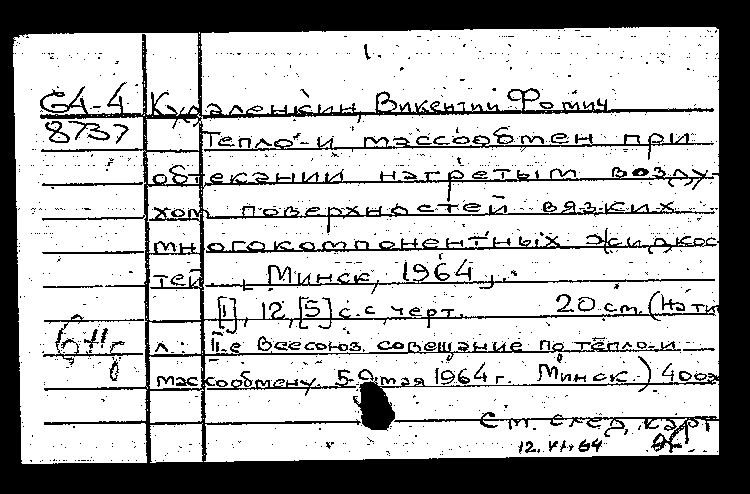 1.
64-4 Кудаленкин, Викентий Фомич
8737 Тепло- и массообмен при
обтекании нагретым возду-
хом поверхностей вязких
многокомпонентных жидкос
тей. [Минск, 1964].
[1], 12, [5] с. с черт. 20 см. (На ти
л.: II-е Всесоюз. совещание по тепло- и
массообмену. 5-9 мая 1964 г. Минск.) 400э
См. след. карт
12.VI.64